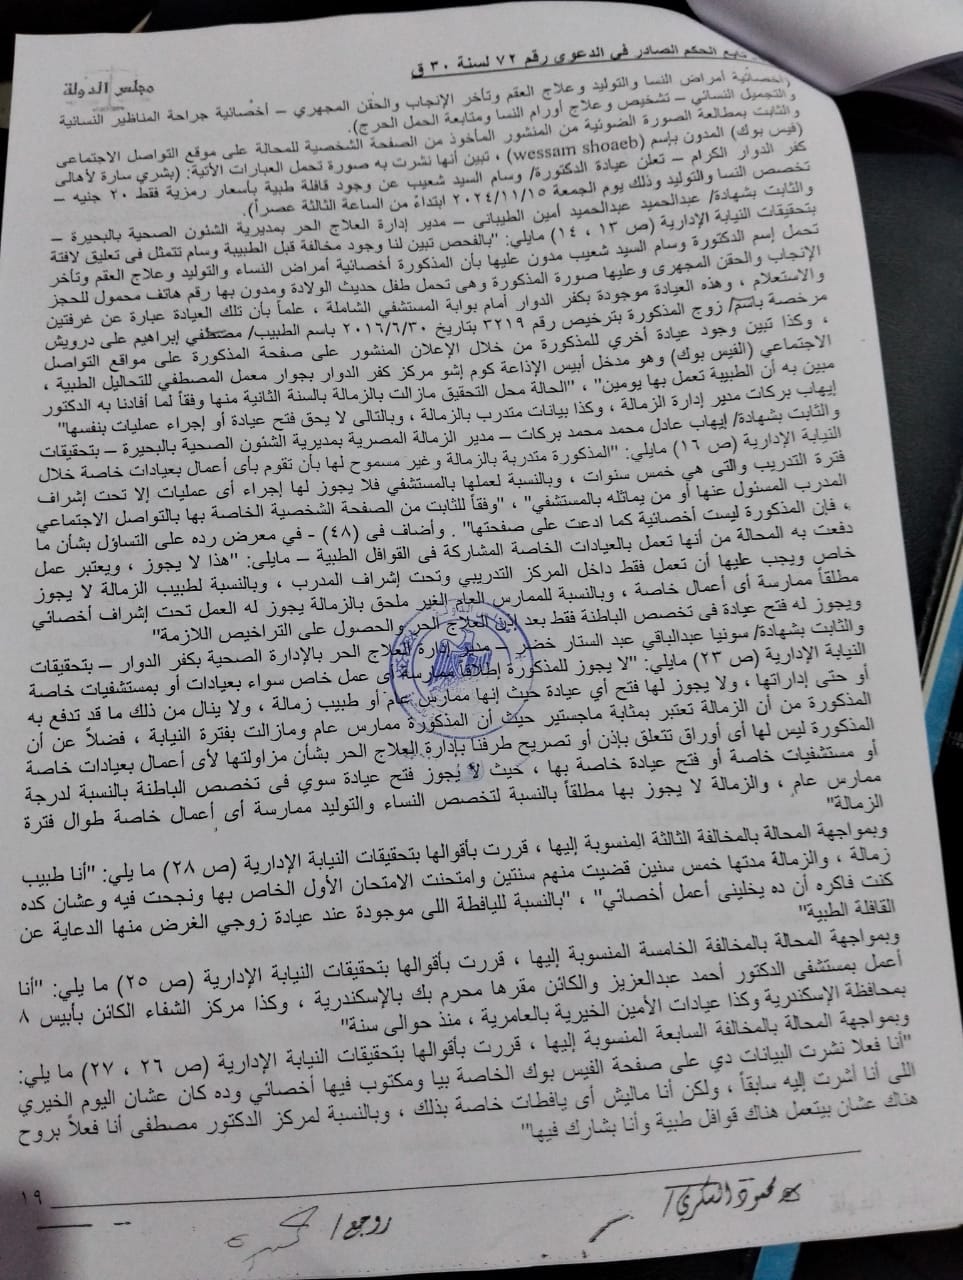 تابع الحكم الصادر في الدعوى رقم ٧٢ لسنة ٣٠ ق
مجلس الدولة
(أخصائية أمراض النسا والتوليد وعلاج العقم وتأخر الإنجاب والحقن المجهري – أخصائية جراحة المناظير النسائية
والتجميل النسائي – تشخيص وعلاج أورام النسا ومتابعة الحمل الحرج).
والثابت بمطالعة الصورة الضوئية من المنشور المأخوذ من الصفحة الشخصية للمحالة على موقع التواصل الاجتماعى
(فيس بوك) المدون بإسم (wessam shoaeb) ، تبين أنها نشرت به صورة تحمل العبارات الأتية: (بشري سارة لأهالى
كفر الدوار الكرام – تعلن عيادة الدكتورة/ وسام السيد شعيب عن وجود قافلة طبية بأسعار رمزية فقط ٢٠ جنيه –
تخصص النسا والتوليد وذلك يوم الجمعة ٢٠٢٤/١١/١٥ ابتداءً من الساعة الثالثة عصراً).
والثابت بشهادة/ عبدالحميد عبدالحميد أمين الطيبانى – مدير إدارة العلاج الحر بمديرية الشئون الصحية بالبحيرة –
بتحقيقات النيابة الإدارية (ص ١٣ ، ١٤) مايلي: "بالفحص تبين لنا وجود مخالفة قبل الطبيبة وسام تتمثل فى تعليق لافتة
تحمل إسم الدكتورة وسام السيد شعيب مدون عليها بأن المذكورة أخصائية أمراض النساء والتوليد وعلاج العقم وتأخر
الإنجاب والحقن المجهرى وعليها صورة المذكورة وهى تحمل طفل حديث الولادة ومدون بها رقم هاتف محمول للحجز
والاستعلام ، وهذه العيادة موجودة بكفر الدوار أمام بوابة المستشفي الشاملة ، علماً بأن تلك العيادة عبارة عن غرفتين
مرخصة باسم/ زوج المذكورة بترخيص رقم ٣٢١٩ بتاريخ ٢٠١٦/٦/٣٠ باسم الطبيب/ مصطفي إبراهيم على درويش
، وكذا تبين وجود عيادة أخري للمذكورة من خلال الإعلان المنشور على صفحة المذكورة على مواقع التواصل
الاجتماعي (الفيس بوك) وهو مدخل أبيس الإذاعة كوم إشو مركز كفر الدوار بجوار معمل المصطفي للتحاليل الطبية ،
مبين به أن الطبيبة تعمل بها يومين" ، "الحالة محل التحقيق مازالت بالزمالة بالسنة الثانية منها وفقاً لما أفادنا به الدكتور
إيهاب بركات مدير إدارة الزمالة ، وكذا بيانات متدرب بالزمالة ، وبالتالى لا يحق فتح عيادة أو إجراء عمليات بنفسها"
والثابت بشهادة/ إيهاب عادل محمد محمد بركات – مدير الزمالة المصرية بمديرية الشئون الصحية بالبحيرة – بتحقيقات
النيابة الإدارية (ص ١٦) مايلي: "المذكورة متدربة بالزمالة وغير مسموح لها بأن تقوم بأى أعمال بعيادات خاصة خلال
فترة التدريب والتى هي خمس سنوات ، وبالنسبة لعملها بالمستشفي فلا يجوز لها إجراء أى عمليات إلا تحت إشراف
المدرب المسئول عنها أو من يماثله بالمستشفي" ، "وفقاً للثابت من الصفحة الشخصية الخاصة بها بالتواصل الاجتماعي
، فإن المذكورة ليست أخصائية كما ادعت على صفحتها" . وأضاف فى (٤٨) - في معرض رده على التساؤل بشأن ما
دفعت به المحالة من أنها تعمل بالعيادات الخاصة المشاركة فى القوافل الطبية – مايلى: "هذا لا يجوز ، ويعتبر عمل
خاص ويجب عليها أن تعمل فقط داخل المركز التدريبي وتحت إشراف المدرب ، وبالنسبة لطبيب الزمالة لا يجوز
مطلقاً ممارسة أى أعمال خاصة ، وبالنسبة للممارس العام الغير ملحق بالزمالة يجوز له العمل تحت إشراف أخصائي
ويجوز له فتح عيادة فى تخصص الباطنة فقط بعد إذن العلاج الحر والحصول على التراخيص اللازمة"
والثابت بشهادة/ سونيا عبدالباقي عبد الستار خضر – مدير إدارة العلاج الحر بالإدارة الصحية بكفر الدوار – بتحقيقات
النيابة الإدارية (ص ٢٣) مايلي: "لا يجوز للمذكورة إطلاقاً ممارسة أى عمل خاص سواء بعيادات أو بمستشفيات خاصة
أو حتى إداراتها ، ولا يجوز لها فتح أي عيادة حيث إنها ممارس عام أو طبيب زمالة ، ولا ينال من ذلك ما قد تدفع به
المذكورة من أن الزمالة تعتبر بمثابة ماجستير حيث أن المذكورة ممارس عام ومازالت بفترة النيابة ، فضلاً عن أن
المذكورة ليس لها أى أوراق تتعلق بإذن أو تصريح طرفنا بإدارة العلاج الحر بشأن مزاولتها لأى أعمال بعيادات خاصة
أو مستشفيات خاصة أو فتح عيادة خاصة بها ، حيث لا يجوز فتح عيادة سوي فى تخصص الباطنة بالنسبة لدرجة
ممارس عام ، والزمالة لا يجوز بها مطلقاً بالنسبة لتخصص النساء والتوليد ممارسة أى أعمال خاصة طوال فترة
الزمالة"
وبمواجهة المحالة بالمخالفة الثالثة المنسوبة إليها ، قررت بأقوالها بتحقيقات النيابة الإدارية (ص ٢٨) ما يلي: "أنا طبيب
زمالة ، والزمالة مدتها خمس سنين قضيت منهم سنتين وامتحنت الامتحان الأول الخاص بها ونجحت فيه وعشان كده
كنت فاكره أن ده يخلينى أعمل أخصائي" ، "بالنسبة لليافطة اللى موجودة عند عيادة زوجي الغرض منها الدعاية عن
القافلة الطبية"
وبمواجهة المحالة بالمخالفة الخامسة المنسوبة إليها ، قررت بأقوالها بتحقيقات النيابة الإدارية (ص ٢٥) ما يلي: "أنا
أعمل بمستشفى الدكتور أحمد عبدالعزيز والكائن مقرها محرم بك بالإسكندرية ، وكذا مركز الشفاء الكائن بأبيس ٨
بمحافظة الإسكندرية وكذا عيادات الأمين الخيرية بالعامرية ، منذ حوالى سنة"
وبمواجهة المحالة بالمخالفة السابعة المنسوبة إليها ، قررت بأقوالها بتحقيقات النيابة الإدارية (ص ٢٦ ، ٢٧) ما يلي:
"أنا فعلا نشرت البيانات دي على صفحة الفيس بوك الخاصة بيا ومكتوب فيها أخصائي وده كان عشان اليوم الخيري
اللى أنا أشرت إليه سابقاً ، ولكن أنا ماليش أى يافطات خاصة بذلك ، وبالنسبة لمركز الدكتور مصطفى أنا فعلاً بروح
هناك عشان بيتعمل هناك قوافل طبية وأنا بشارك فيها"
١٩
محمود السكري/
روجع/